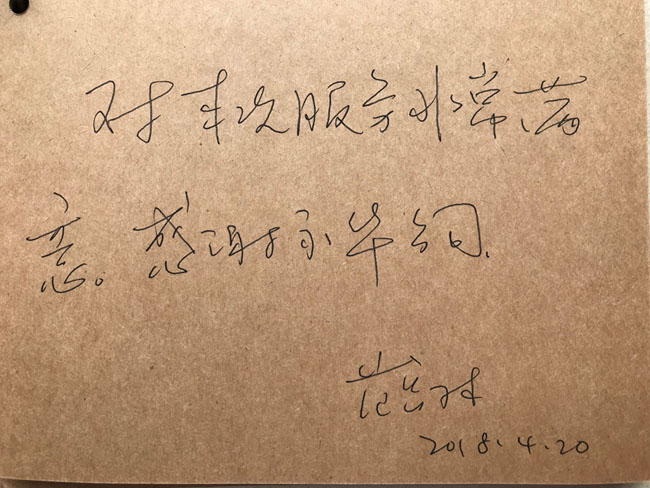 对本次服务非常满
意。感谢永华公司.
2018.4.20